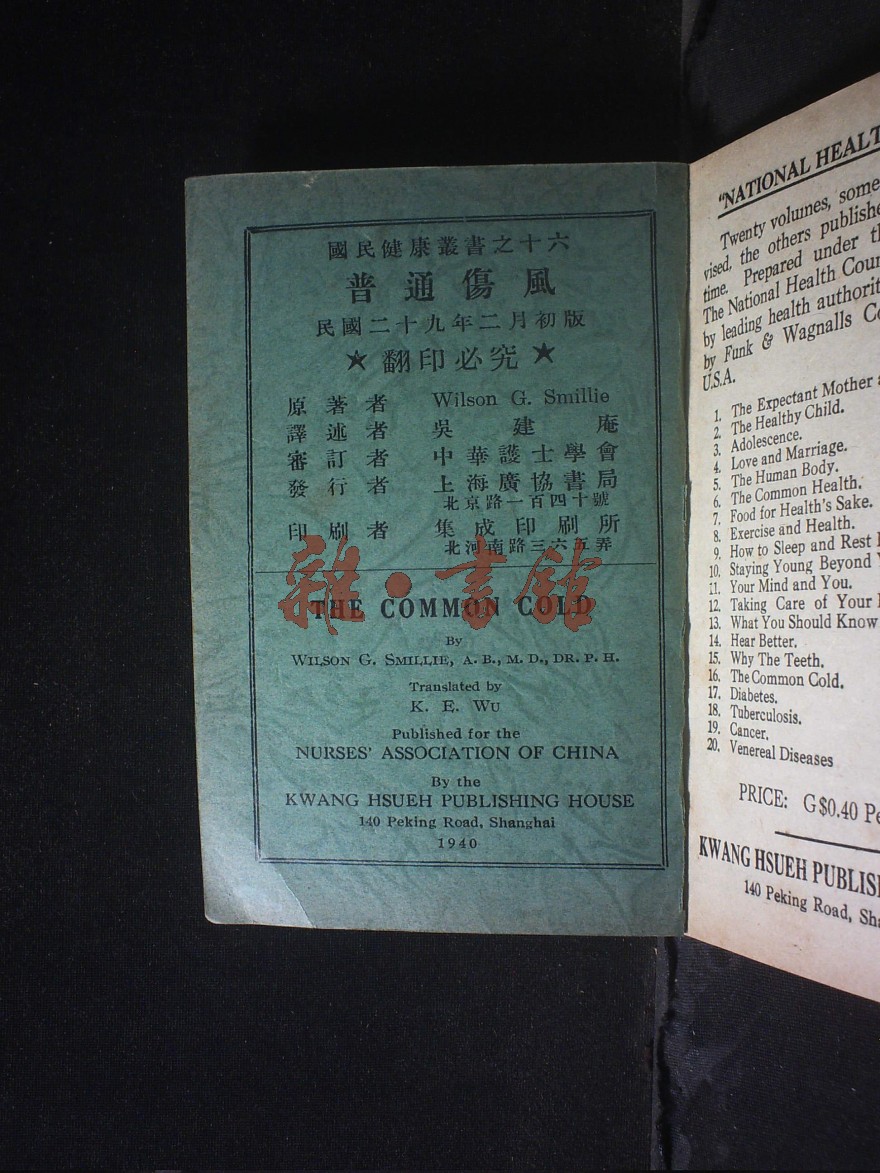 國民健康叢書之十六
普通傷風
民國二十九年二月初版
★翻印必究★
原著者 Wilson G. Smillie
譯述者 吳建庵
審訂者 中華護士學會
發行者 上海廣協書局
北京路一百四十號
印刷者 集成印刷所
北河南路三六五弄
雜·書館
THE COMMON COLD
By
WILSON G. SMILLIE, A. B., M. D., DR. P. H.
Translated by
K. E. WU
Published for the
NURSES' ASSOCIATION OF CHINA
By the
KWANG HSUEH PUBLISHING HOUSE
140 Peking Road, Shanghai
1940
"NATIONAL HEALT
Twenty volumes, some
vised, the others publishe
time. Prepared under th
The National Health Coun
by leading health authorit
by Funk & Wagnalls Co
U.S.A.
1. The Expectant Mother a
2. The Healthy Child.
3. Adolescence.
4. Love and Marriage.
5. The Human Body.
6. The Common Health.
7. Food for Health's Sake.
8. Exercise and Health.
9. How to Sleep and Rest
10. Staying Young Beyond
11. Your Mind and You.
12. Taking Care of Your
13. What You Should Know
14. Hear Better.
15. Why The Teeth.
16. The Common Cold.
17. Diabetes.
18. Tuberculosis.
19. Cancer.
20. Venereal Diseases
PRICE: G$0.40 Pe
KWANG HSUEH PUBLIS
140 Peking Road, Sha